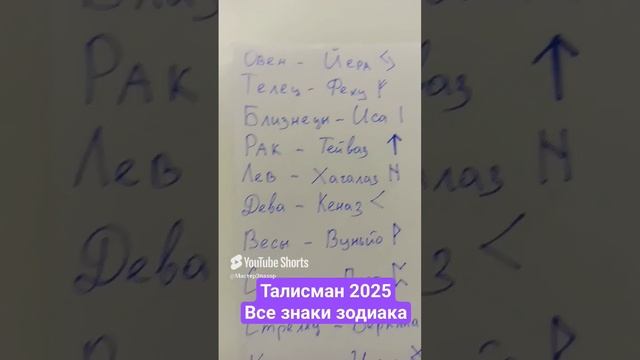 Овен - Йера
Телец - Феху ᚠ
Близнецы - Иса ᛁ
Рак - Тейваз ↑
Лев - Хагалаз ᚺ
Дева - Кеназ <
Весы - Вуньо ᚹ
YouTube Shorts
@МастерЭлазар
Талисман 2025
Все знаки зодиака
Стрелец -